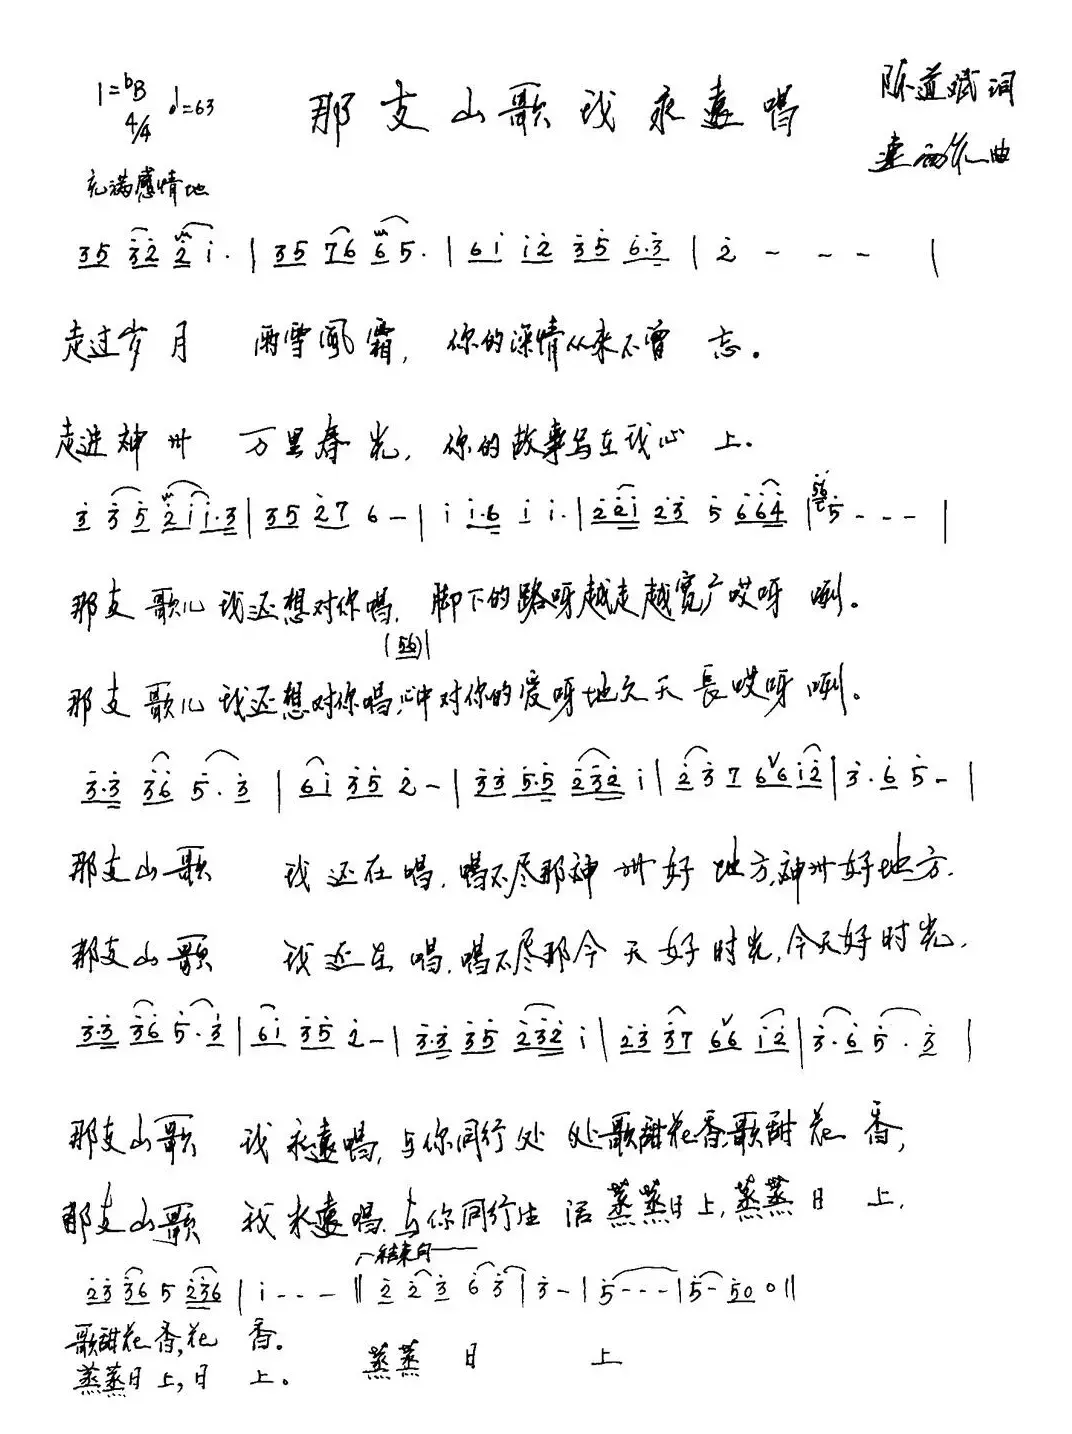 1=bB 4/4 ♩=63
那支山歌我永遠唱
陈道斌词
曲
充满感情地
35 3̇2̇ 2̇ 1̇. | 35 76 6 5. | 61̇ 1̇2̇ 3̇5̇ 6·3̇ | 2̇ - - - |
走过岁月 雨雪風霜，你的深情从来不曾忘。
走进神州 万里春光，你的故事写在我心上。
3̇ 3̇ 5̇ 2̇1̇1̇·3̇ | 35 2̇7 6 - | 1̇ 1̇·6 1̇ 1̇. | 2̇2̇1̇ 2̇3̇ 5̇ 6̇6̇4̇ | 5̇ - - - |
那支歌儿我还想对你唱，脚下的路呀越走越宽广哎呀咧。
(56)|
那支歌儿我还想对你唱，心中对你的爱呀地久天長哎呀咧。
3̇·3̇ 3̇6̇ 5̇·3̇ | 61̇ 3̇5̇ 2̇ - | 3̇3̇ 5̇·5̇ 2̇3̇2̇ 1̇ | 2̇ 3̇ 7 6∨61̇2̇ | 3̇·6̇ 5̇ - |
那支山歌 我还在唱，唱不尽那神州好地方，神州好地方.
那支山歌 我还在唱，唱不尽那今天好时光，今天好时光.
3̇·3̇ 3̇6̇ 5̇·3̇ | 61̇ 3̇5̇ 2̇ - | 3̇·3̇ 3̇5̇ 2̇3̇2̇ 1̇ | 2̇3̇ 3̇7 6∨6 1̇2̇ | 3̇·6̇ 5̇·3̇ |
那支山歌 我永遠唱，与你同行处处歌甜花香，歌甜花香，
那支山歌 我永遠唱，与你同行生活蒸蒸日上，蒸蒸日上.
结束句
2̇3̇ 3̇6 5 2̇36 | 1̇ - - - ‖ 2̇ 2̇ 3̇ 6̇ 3̇ | 3̇ - | 5̇ - - - | 5̇ - 5̇0 0 ‖
歌甜花香，花香。
蒸蒸日上，日上。 蒸蒸日上